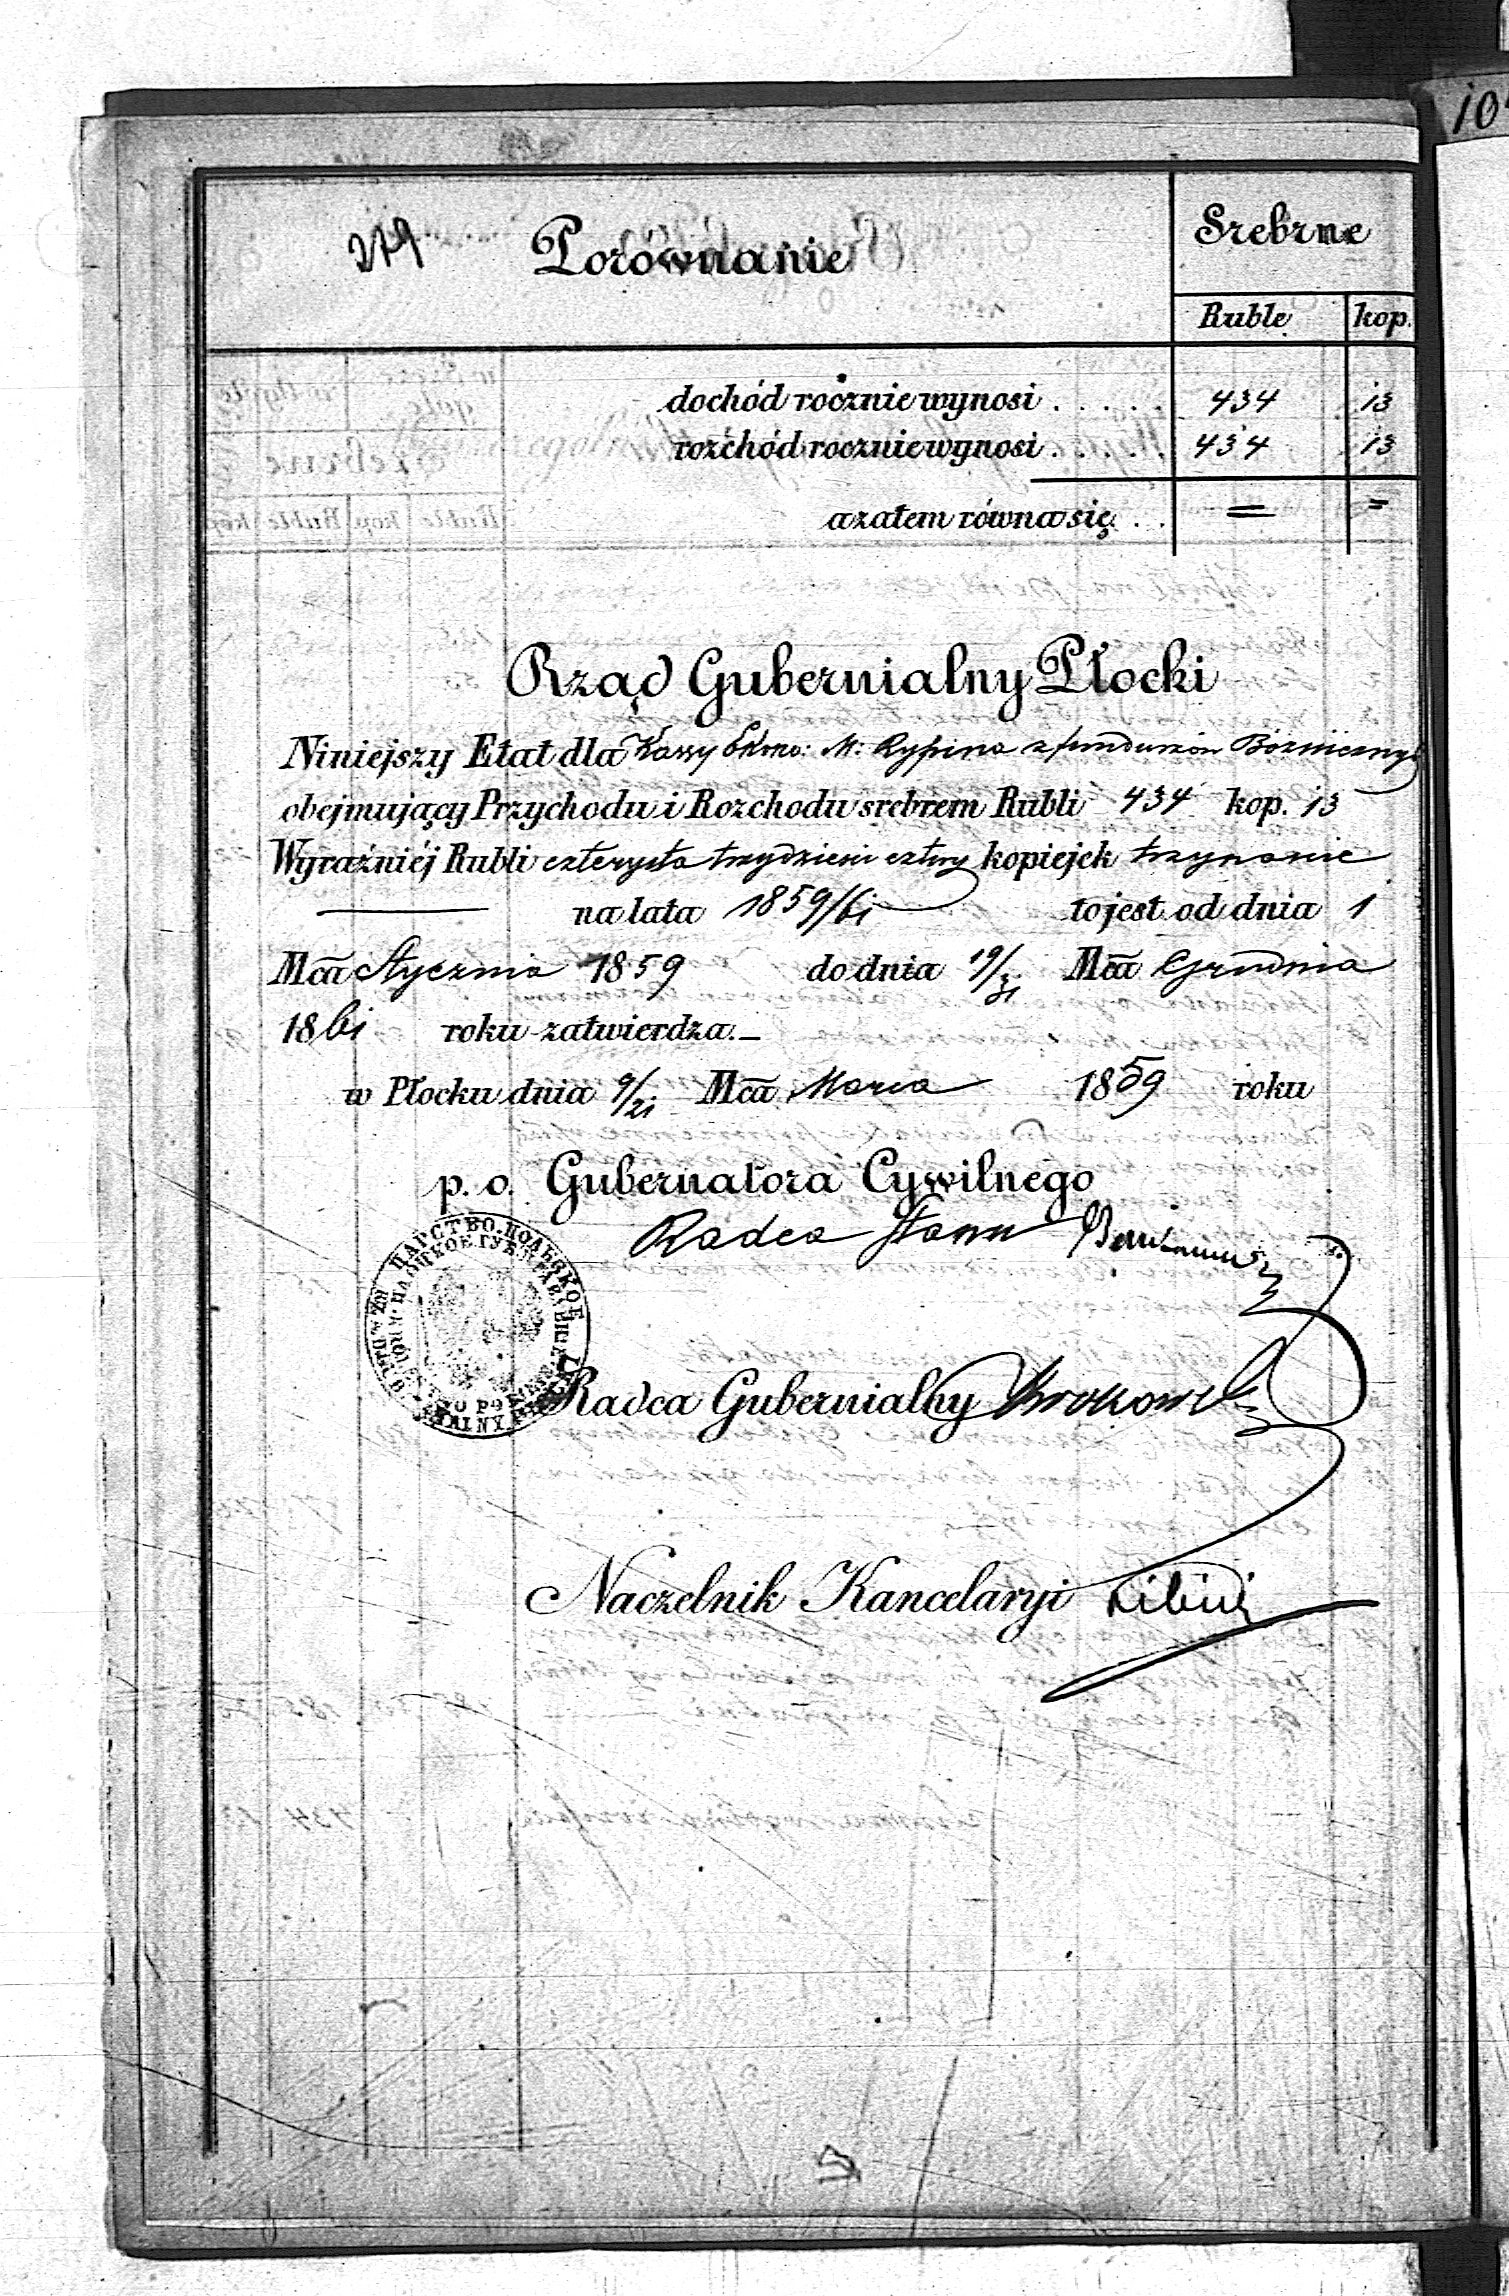 104
279 Porównanie
Srebrne
Ruble kop.
dochód rocznie wynosi . . . . . 434 13
rozchód rocznie wynosi . . . . . 434 13
azatem równa się . . = =
Rząd Gubernialny Płocki
Niniejszy Etat dla Kassy Ekono: M: Rypina z funduszów Bóżnicznych
obejmujący Przychodu i Rozchodu srebrem Rubli 434 kop. 13
Wyraźniéj Rubli czterysta trzydzieści cztery kopiejek trzynaście
na lata 1859/61 to jest od dnia 1
Mca Stycznia 1859 do dnia 19/31 Mca Grudnia
1861 roku zatwierdza.—
w Płocku dnia 9/21 Mca Marca 1859 roku
p. o. Gubernatora Cywilnego
Radca Stanu
ЦАРСТВО ПОЛЬСКОЕ
Radca Gubernialny
Naczelnik Kancelaryi